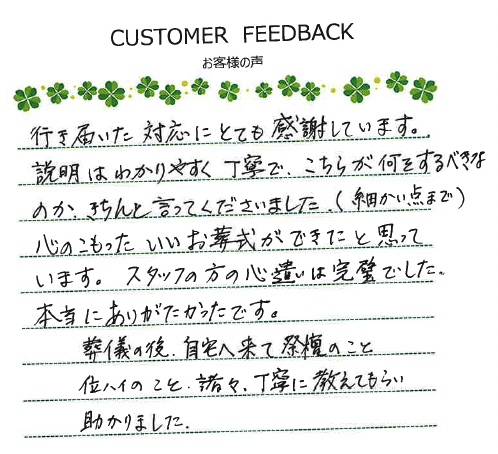 CUSTOMER FEEDBACK
お客様の声
行き届いた対応にとても感謝しています。
説明はわかりやすく丁寧で、こちらが何をするべきな
のか、きちんと言ってくださいました。(細かい点まで)
心のこもったいいお葬式ができたと思って
います。スタッフの方の心遣いは完璧でした。
本当にありがたかったです。
葬儀の後、自宅へ来て祭壇のこと
位ハイのこと、諸々、丁寧に教えてもらい
助かりました。